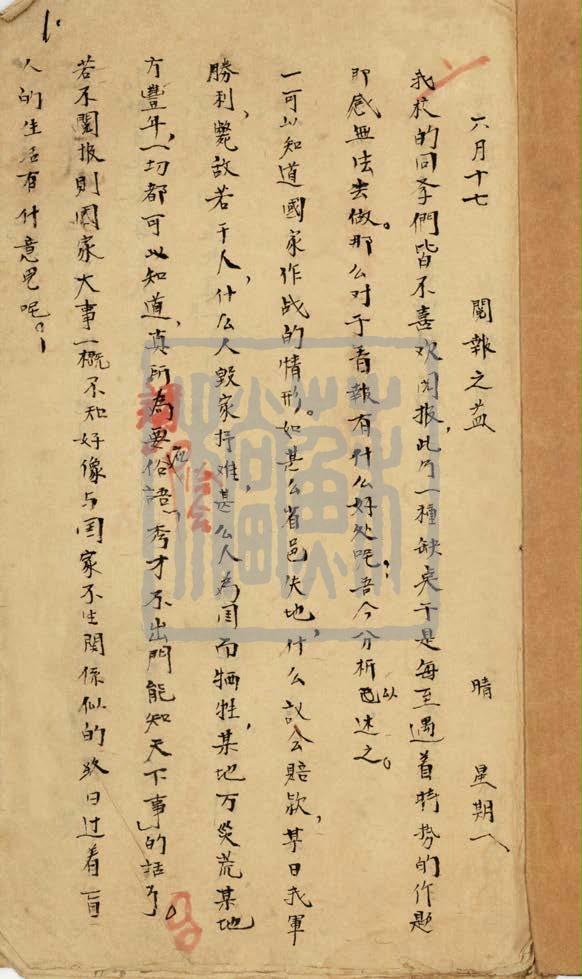 六月十七 閱報之益 晴 星期八
我校的同學們皆不喜欢阅报，此乃一種缺点于是每至遇着時势的作題
即感無法去做。那么对于看報有什么好处呢？吾今分析以述之。
一可以知道國家作战的情形。如甚么省邑失地，什么議会賠款，某日我軍
勝利，斃敌若干人，什么人毁家抒难，甚么人為国而牺牲，某地方災荒某地
方豐年，一切都可以知道，真所為要俗語「秀才不出門能知天下事」的話了。
若不閱报則國家大事一概不知好像与国家不生関係似的終日过着盲
人的生活有什意思呢。
1.